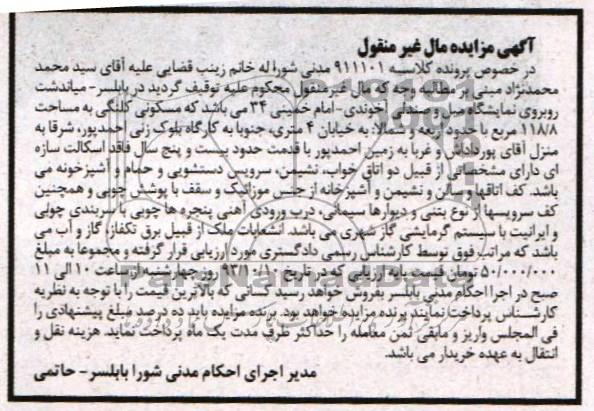 آگهی مزایده مال غیر منقول
در خصوص پرونده کلاسه ۹۱۱۱۰۱ مدنی شورا له خانم زینب قضایی علیه آقای سید محمد
محمدنژاد مبنی بر مطالبه وجه که مال غیرمنقول محکوم علیه توقیف گردید در بابلسر- میاندشت
روبروی نمایشگاه مبل و صندلی آخوندی-امام خمینی ۳۴ می باشد که مسکونی کلنگی به مساحت
۱۱۸/۸ مربع با حدود اربعه و شمالا: به خیابان ۴ متری، جنوبا به کارگاه بلوک زنی احمدپور، شرقا به
منزل آقای پورداداش و غربا به زمین احمدپور با قدمت حدود بیست و پنج سال فاقد اسکالت سازه
ای دارای مشخصاتی از قبیل دو اتاق خواب، نشیمن، سرویس دستشویی و حمام و آشپزخونه می
باشد. کف اتاقها و سالن و نشیمن و آشپزخانه از جنس موزائیک و سقف با پوشش چوبی و همچنین
کف سرویسها از نوع بتنی و دیوارها سیمانی، درب ورودی آهنی پنجره ها چوبی با سربندی چوبی
و ایرانیت با سیستم گرمایشی گاز شهری می باشد. انشعابات ملک از قبیل برق تکفاز، گاز و آب می
باشد که مراتب فوق توسط کارشناس رسمی دادگستری مورد ارزیابی قرار گرفته و مجموعا به مبلغ
۵۰/۰۰۰/۰۰۰ تومان قیمت پایه ارزیابی که در تاریخ ۹۳/۱۰/۱۰ روز چهارشنبه از ساعت ۱۰ الی ۱۱
صبح در اجرا احکام مدنی بابلسر بفروش خواهد رسید کسانی که بالاترین قیمت را با توجه به نظریه
کارشناس پرداخت نمایند برنده مزایده خواهد بود. برنده مزایده باید ده درصد مبلغ پیشنهادی را
فی المجلس واریز و مابقی ثمن معامله را حداکثر ظرف مدت یک ماه پرداخت نماید. هزینه نقل و
انتقال به عهده خریدار می باشد.
مدیر اجرای احکام مدنی شورا بابلسر- حاتمی